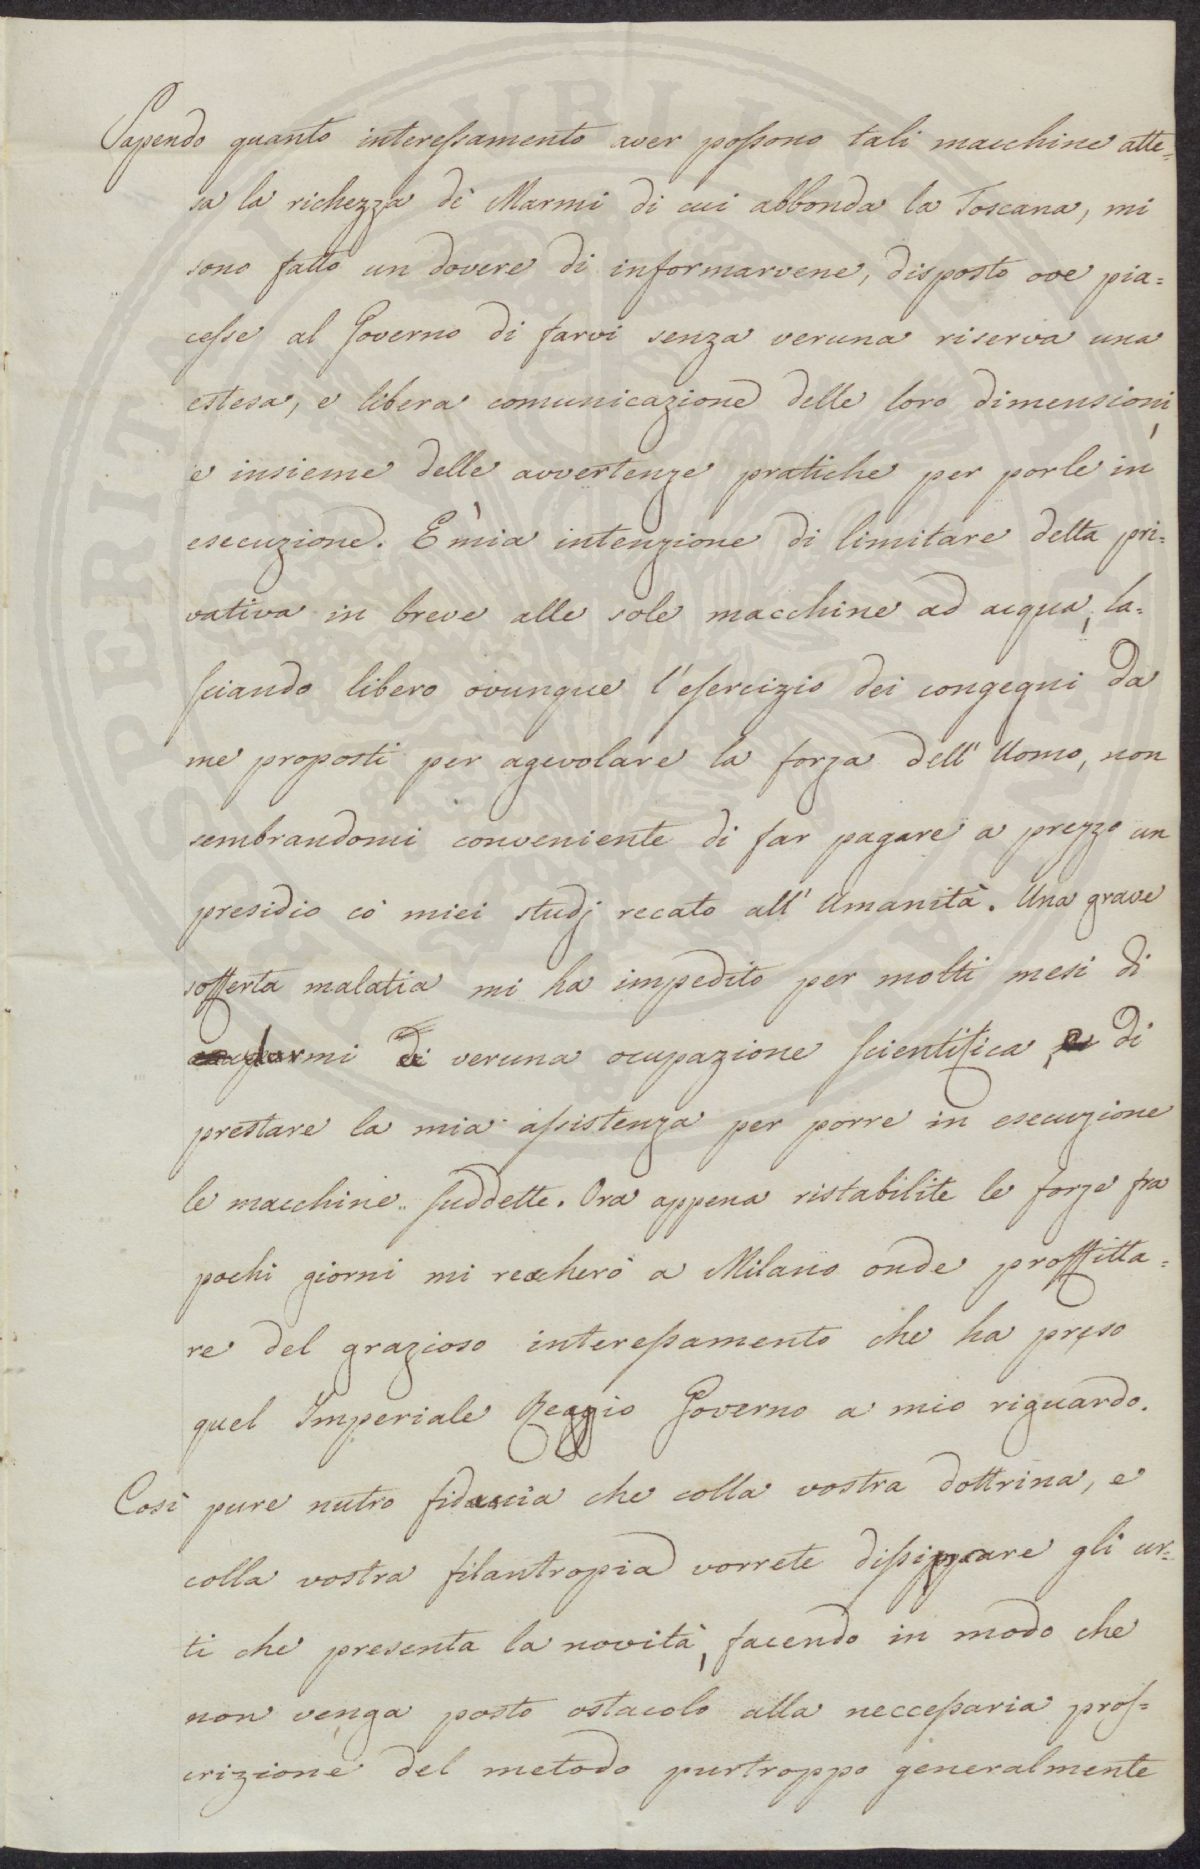 Sapendo quanto interessamento aver possono tali macchine atte=
sa la richezza di Marmi di cui abbonda la Toscana, mi
sono fatto un dovere di informarvene, disposto ove pia=
cesse al Governo di farvi senza veruna riserva una
estesa, e libera comunicazione delle loro dimensioni,
e insieme delle avvertenze pratiche per porle in
esecuzione. E' mia intenzione di limitare detta pri=
vativa in breve alle sole macchine ad acqua, la=
sciando libero ovunque l'esercizio dei congegni da
me proposti per agevolare la forza dell'Uomo, non
sembrandomi conveniente di far pagare a prezzo un
presidio co' miei studj recato all'Umanità. Una grave
sofferta malatia mi ha impedito per molti mesi di
darmi a veruna ocupazione scientifica, e di
prestare la mia assistenza per porre in esecuzione
le macchine suddette. Ora appena ristabilite le forze fra
pochi giorni mi recherò a Milano onde proffitta=
re del grazioso interessamento che ha preso
quel Imperiale Reggio Governo a mio riguardo.
Così pure nutro fiducia che colla vostra dottrina, e
colla vostra filantropia vorrete dissippare gli ur=
ti che presenta la novità, facendo in modo che
non venga posto ostacolo alla neccessaria pros=
crizione del metodo purtroppo generalmente